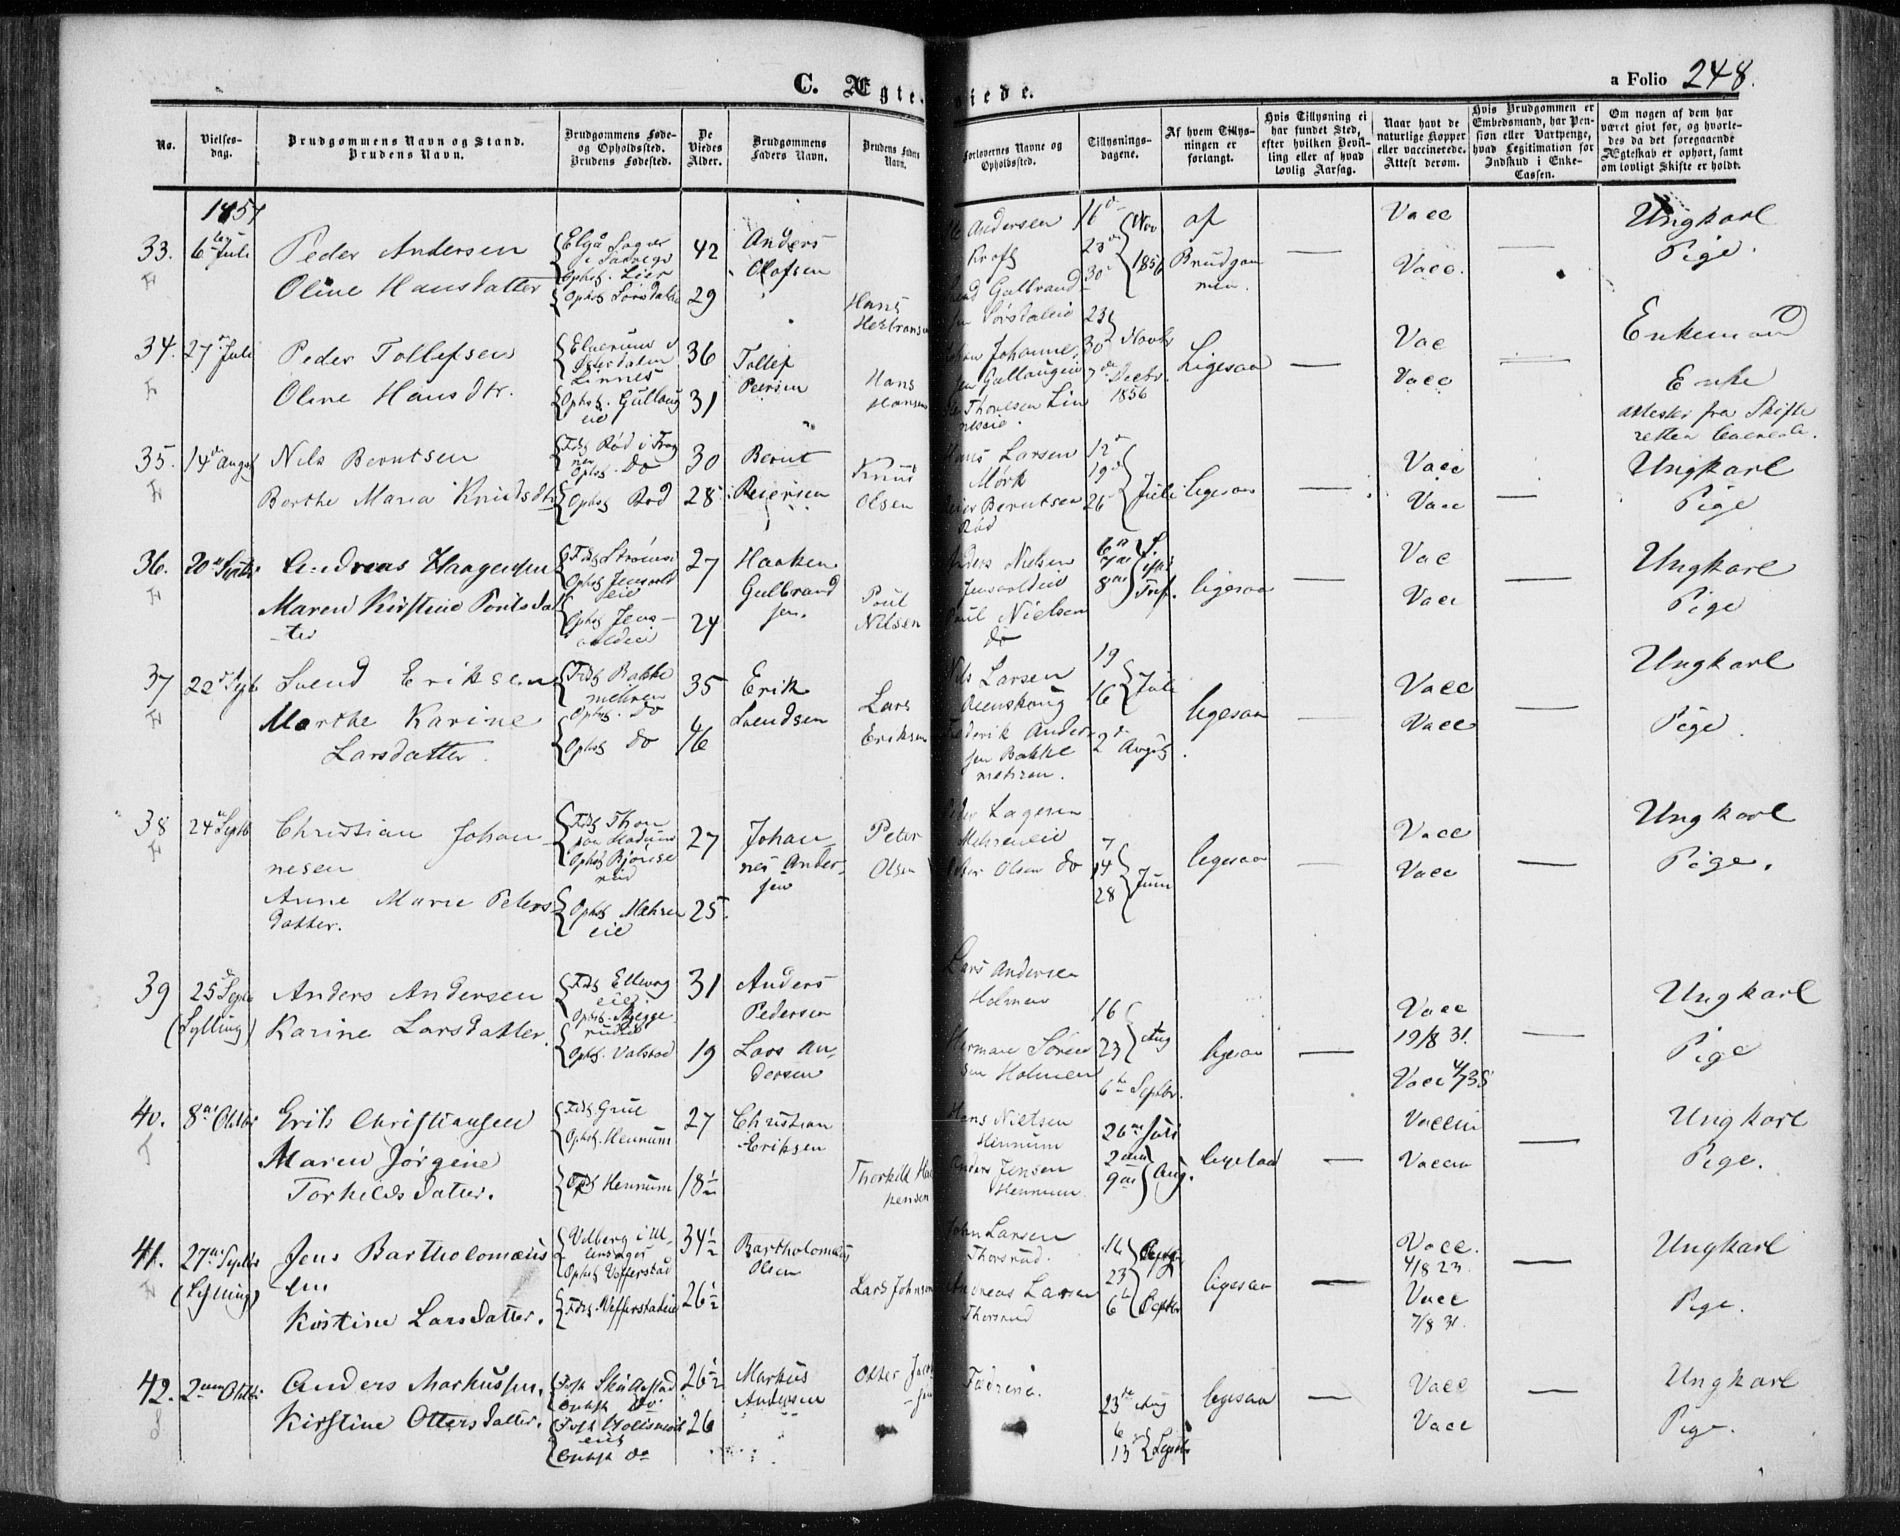 C. Ægteviede.
a Folio 248.
No.
Vielses-
dag.
Brudgommens Navn og Stand.
Brudens Navn.
Brudgommens Føde-
og Opholdssted.
Brudens Fødested.
De
Viedes
Alder.
Brudgommens
Faders Navn.
Brudens Faders
Navn.
Forlovernes Navne og
Opholdssted.
Tillysnings-
dagene.
Af hvem Tillys-
ningen er
forlangt.
Hvis Tillysning ei
har fundet Sted,
efter hvilken Bevil-
ling eller af hvad
lovlig Aarsag.
Naar havt de
naturlige Kopper
eller vaccinerede.
Attest derom.
Hvis Brudgommen er
Embedsmand, har Pen-
sion eller Vartpenge,
hvad Legitimation for
Indskud i Enke-
Cassen.
Om nogen af dem har
været givt før, og hvorle-
des da det foregaaende
Ægteskab er ophørt, samt
om lovligt Skifte er holdt.
1857
33. 6te Juli
Peder Andersen
Oline Hansdatter
Ophst. Lier
Ophst Sørsdaleie
42
29
Anders
Olafsen
Hans
Andersen
Kroft
Gulbrand
Sørsdaleie
16de
23de
30te
Nov
1856
af
Brudgom
men.
Vacc
Vacc.
Ungkarl
Pige.
34. 27de Juli
Peder Tollefsen
Oline Hansdtr.
Elverum i
Østerdalen
Linnes
Ophst. Gullaug
eie
36
31
Tollef
Hans
Hansen
Johanne
sen Gullaugeie
Thoresen Lin
neseie.
23
30
Novbr
7de Decbr.
1856
Ligesaa
Vac
Vacc
Enkemand
Enke
Attester fra Skifte
retten
35. 14de Augst
Nils Berntsen
Berthe Maria Knudsdtr
Fdt Rød i Trog
Ophst. Do
Ophst Rød
30
28
Bernt
Reiersen
Knud
Olsen
Hans Larsen
Mørk
Reier Berntsen
Rød
12te
19de
26
Juli
ligesaa
Vacc
Vacc
Ungkarl
Pige
36. 20de Septbr
Andreas Haagensen
Maren Kirstine Poulsdat
-ter
Fdt Strømsø
Ophst Jensvold
eie
Ophst Jens-
voldeie
27
24
Haaken
Gulbrand
sen.
Poul
Nilsen
Anders Nielsen
Jensvoldeie
Poul Nielsen
do
6te
8de
ligesaa
Vac
Vacc
Ungkarl
Pige
37 20de Septb
Svend Eriksen
Marthe Karine
Larsdatter.
Fdt Bakke
mehren
Ophst. do
Ophst do
35
46
Erik
Svendsen
Lars
Eriksen
Nils Larsen
Frederik Ander
sen Bakke
mehren.
19
16
Juli
2de Augst
ligesaa
Vacc
Vacc
Ungkarl
Pige
38 24de Septb
Christian Johan-
nesen
Anne Marie Peters-
datter.
Fdt Thon
paa Modum
Ophst Bjønse
rud
Ophst Mehren
eie
27
25.
Johan-
nes Ander-
sen
Peter
Olsen
Peder Lagesen
Mehreneie
Peder Olsen do
7
14
28
Juni
ligesaa
Vacc
Vacc
Ungkarl
Pige.
39 25de Septb
(Sylling)
Anders Andersen
Karine Larsdatter.
Fdt Ellevog
eie.
Ophst. Skjegge
rudeie
Ophst. Valstad
31
19
Anders
Pedersen
Lars An-
dersen
Lars Andersen
Holmen
Herman Søren
sen Holmen
16
23
Aug
6te Septbr.
ligesaa
Vacc
19/8 31.
Vacc 4/7 38
Ungkarl
Pige
40. 8de Oktbr
Erik Christiansen
Maren Jørgine
Torkildsdatter.
Fdt Grue
Ophst. Hennum
Fdt Hennum
27
18½
Christian
Eriksen
Thorkild Ha
gensen
Hans Nielsen
Hennum
Anders Jensen
Hennum
26de Juli
2den
9de
Aug.
ligesaa
Vaccin
Vaccin
Ungkarl
Pige.
41. 27de Septbr
(Sylling)
Jens Bartholomæus
sen
Kirstine Larsdatter.
Velberg i Ul-
lensager
Ophst Vefferstad
Fdt. Vefferstadeie
34½
26½
Bartholomæus
Olsen
Lars Johnsen
John Larsen
Thorsrud.
Andreas Larsen
Thorsrud
16
23
6te Septbr
ligesaa
Vacc.
4/8 23.
Vacc
7/8 31.
Ungkarl
Pige.
42. 2den Oktbr.
Anders Markussen.
Kirstine Ottersdatter.
Fdst Skullestad
Ophst Do.
eie
Ophst do
26½
26
Markus
Andersen
Otter Jacob
sen
Fædrene.
23de Aug
6
13
Septbr
ligesaa
Vacc
Vacc
Ungkarl
Pige.